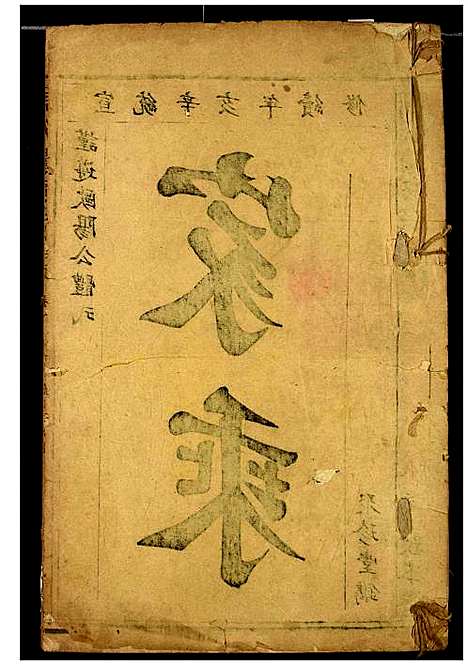 宣統辛亥年續修
謹遵歐陽公體式
家乘
珍堂鐫